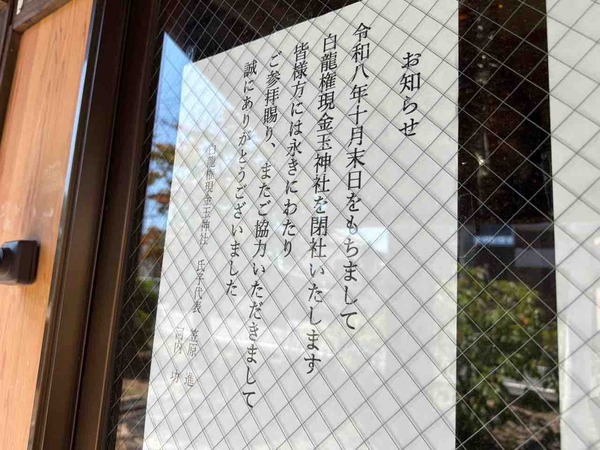 お知らせ
令和八年十月末日をもちまして
白龍権現金玉神社を閉社いたします
皆様方には永きにわたり
ご参拝賜り、またご協力いただきまして
誠にありがとうございました
白龍権現金玉神社 氏子代表 笠原 進
功